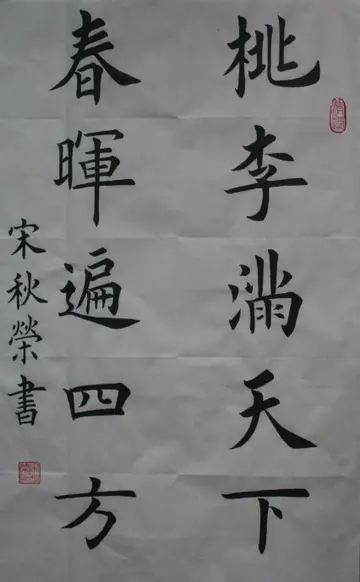 桃李滿天下
春暉遍四方
宋秋榮書